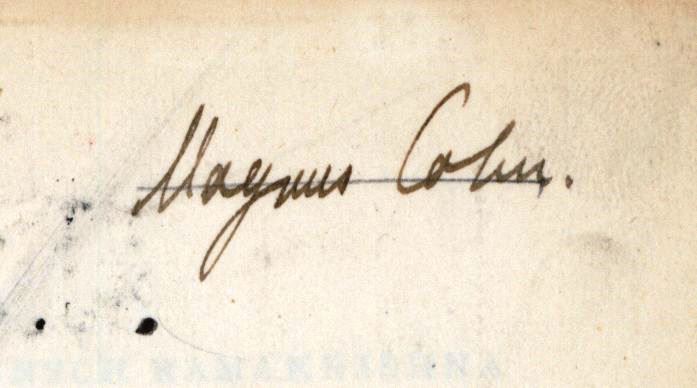 Magnus Cohn.